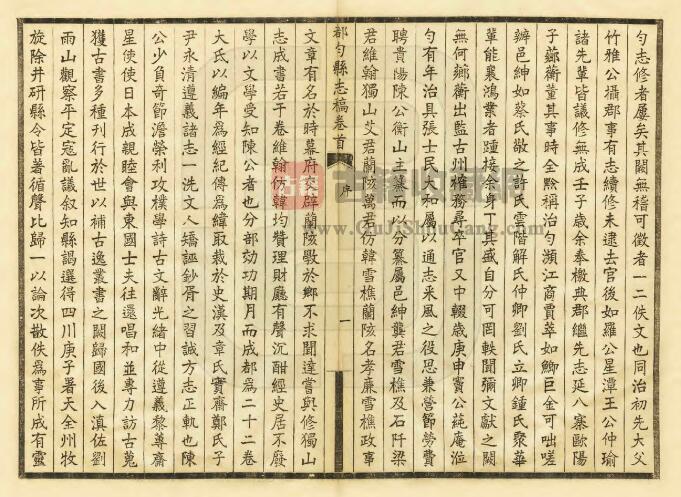 勻志修者屢矣其闕無稽可徵者一二佚文也同治初先大父
竹雅公攝郡事有志續修未逮去官後如羅公星潭王公仲瑜
諸先輩皆議修無成壬子歲余奉檄典郡繼先志延八寨歐陽
子薌蘅董其事時全黔稱治勻瀕江商賈萃如鯽巨金可咄嗟
辦邑紳如蔡氏敬之許氏雲階解氏仲卿劉氏立卿鍾氏眾華
輩能襄鴻業者踵接余身丁其盛自分可罔軼聞彌文獻之闕
無何薌蘅出監古州榷務尋卒官又中輟歲庚申竇公蒓庵涖
勻有年治具張士民大和屬以通志采風之役思兼營節勞費
聘貴陽陳公衡山主纂而以分纂屬邑紳龔君雪樵及石阡梁
君維翰獨山艾君蘭陔萬君仿韓雪樵蘭陔名孝廉雪樵政事
都勻縣志稿卷首
序
一
文章有名於時幕府交辟蘭陔斆於鄉不求聞達嘗與修獨山
志成書若干卷維翰仿韓均贊理財廳有聲沉酣經史居不廢
學以文學受知陳公者也分部効功期月而成都為二十二卷
大氐以編年為經紀傳為緯取裁於史漢及章氏實齋鄭氏子
尹永清遵義諸志一洗文人矯誣鈔胥之習誠方志正軌也陳
公少負奇節澹榮利攻樸學詩古文辭光緒中從遵義黎尊齋
星使使日本成親睦會與東國士夫往還唱和並專力訪古蒐
獲古書多種刊行於世以補古逸叢書之闕歸國後入滇佐劉
雨山觀察平定寇亂議叙知縣謁選得四川庚子署天全州牧
旋除井研縣令皆著循聲比歸一以論次散佚為事所成有靈
古籍
www.GuJiShuGang.com